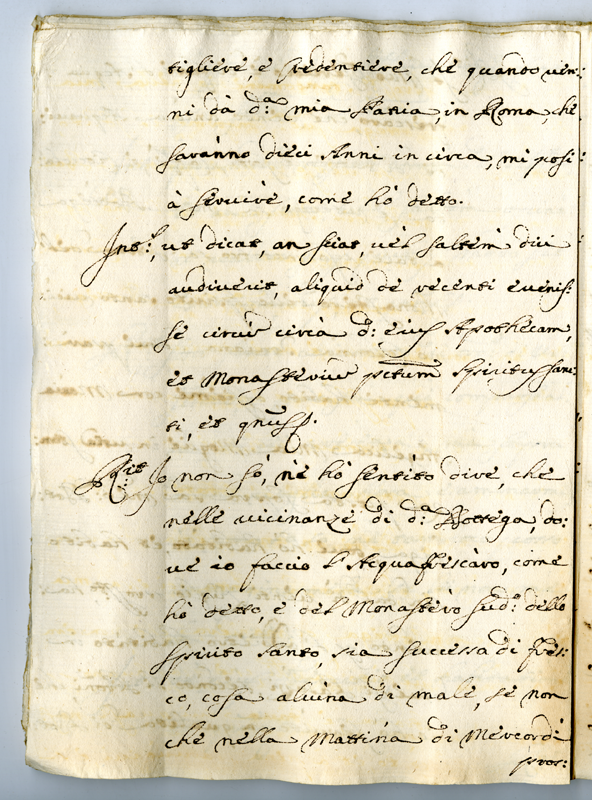 tigliere, e Credentiere, che quando ven:
ni dà d.ª mia Patria, in Roma, che
saranno dieci Anni in circa, mi posi
à servire, come hò detto.
Int.s, ut dicat, an sciat, vel saltem dici
audiverit, aliquid de recenti evenis:
se circa d: eius Apothecam,
et Monasterium Spiritus Sanc:
ti, et
R.it Io non sò, nè hò sentito dire, che
nelle vicinanze di d.ª Bottega, do:
ve io faccio l'Acquafrescàro, come
hò detto, e del Monastèro sud.º dello
Spirito santo, sia successa di fres:
co, cosa alcuna di male, se non
che nella Mattina di Mercordì
pros: